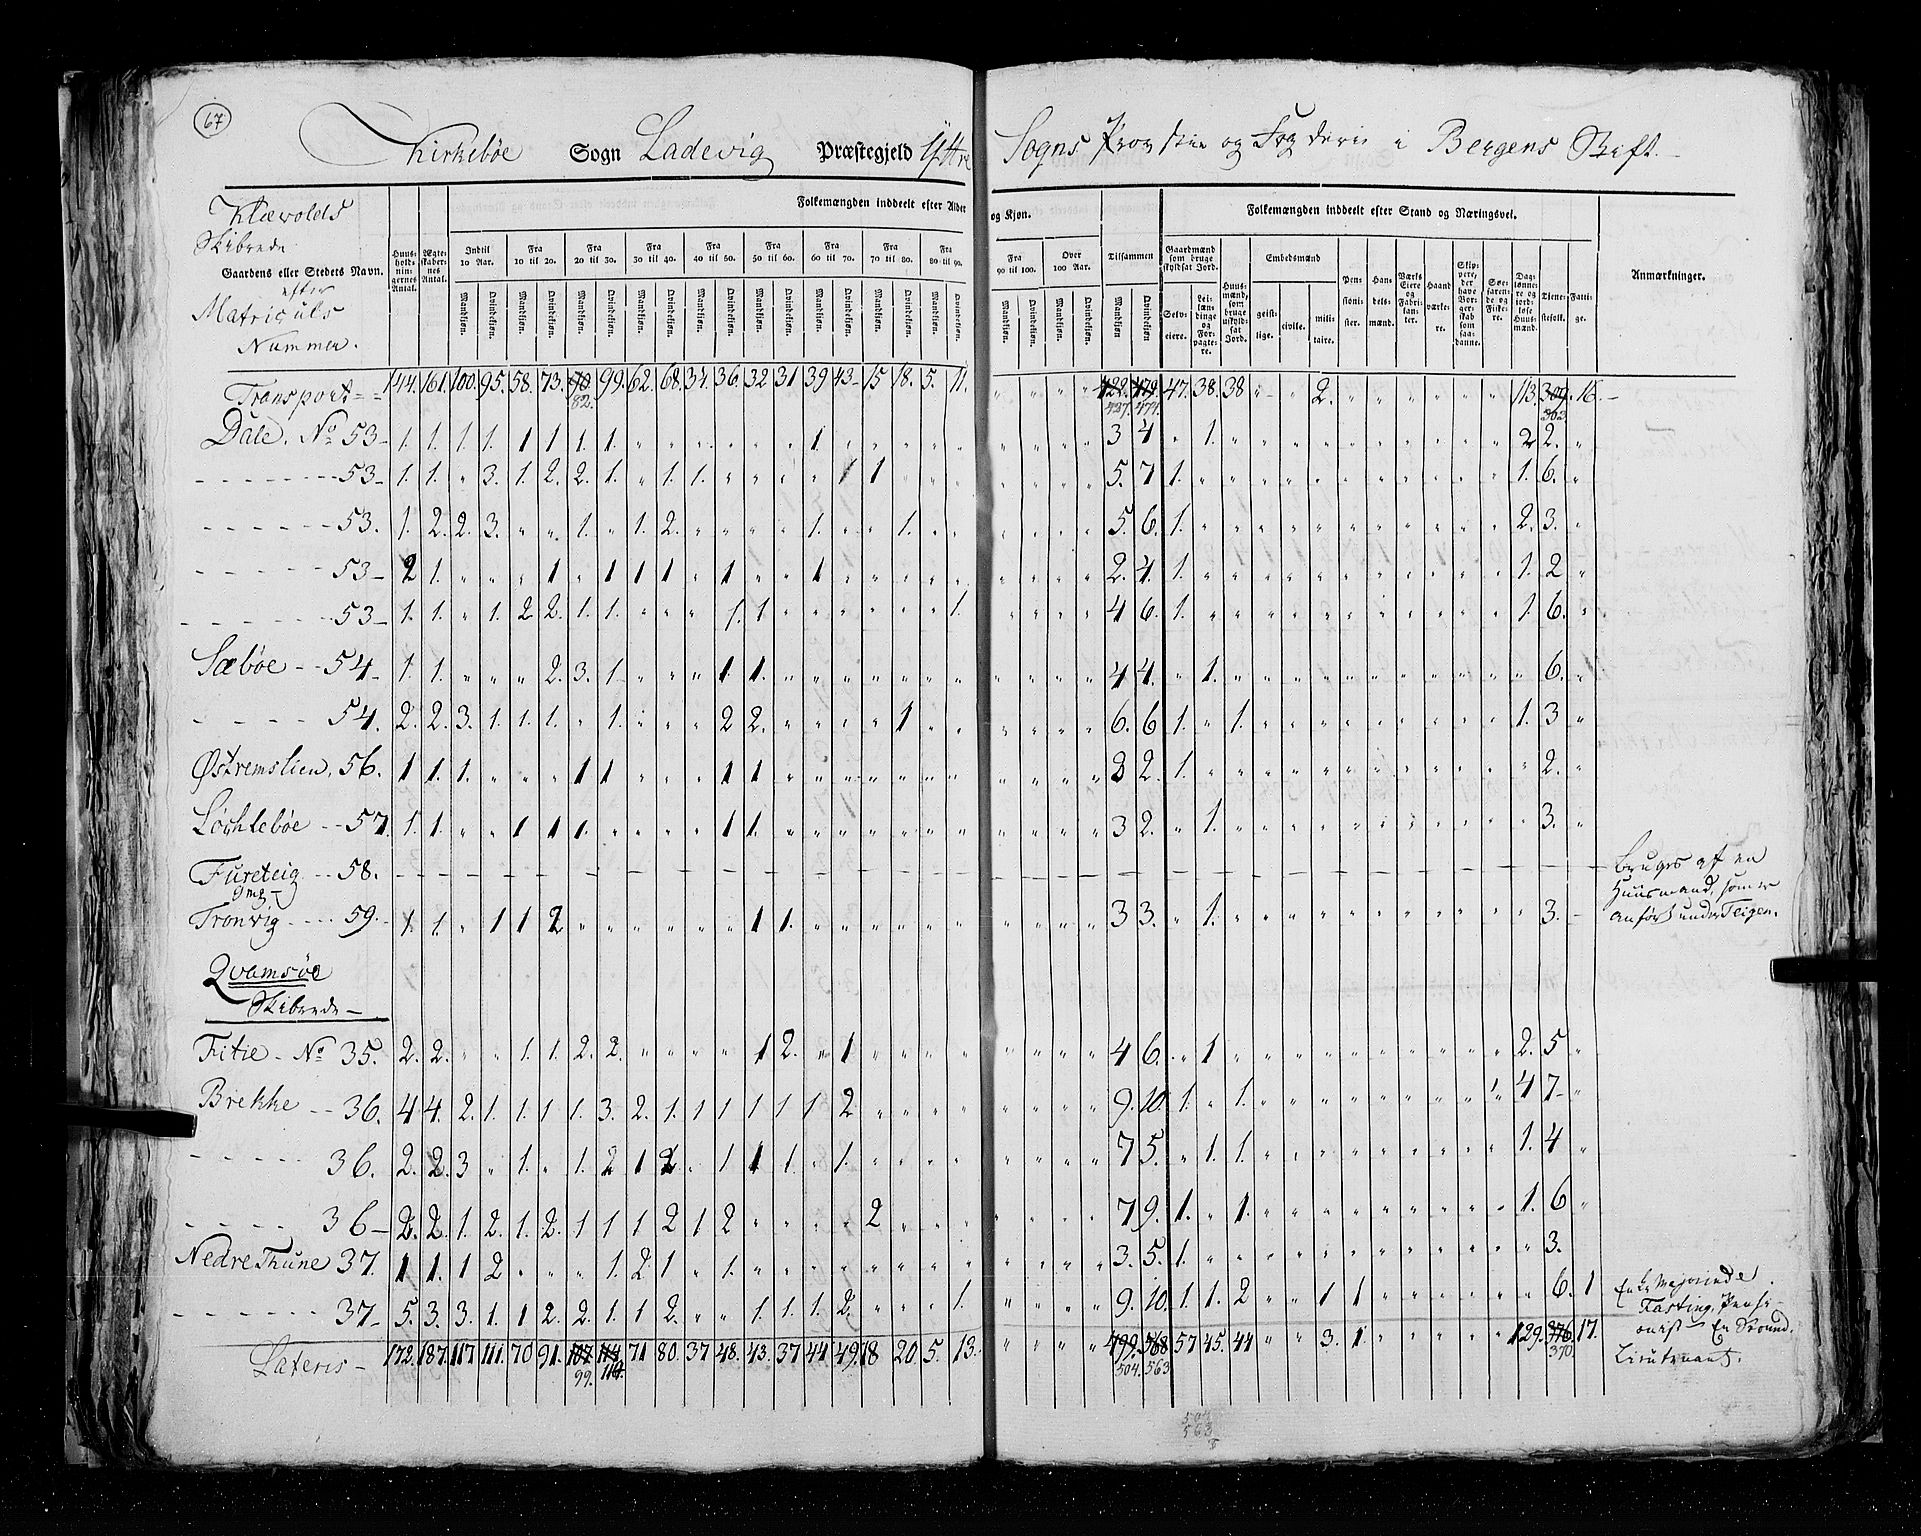 67
Kirkebøe Sogn Ladevig Præstegjeld Yttre Sogns Provstie og Fogderie i Bergens Stift.
Klævolds
Skibrede
Gaardens eller Stedets Navn.
efter
Matriculs
Nummer.
Huusholdningernes Antal.
Ægteskabernes Antal.
Folkemængden inddeelt efter Alder og Kjøn.
Indtil 10 Aar.
Fra 10 til 20.
Fra 20 til 30.
Fra 30 til 40.
Fra 40 til 50.
Fra 50 til 60.
Fra 60 til 70.
Fra 70 til 80.
Fra 80 til 90.
Fra 90 til 100.
Over 100 Aar.
Tilsammen
Mandkjøn. Qvindekjøn.
Folkemængden inddeelt efter Stand og Næringsvei.
Gaardmænd som bruge skyldsat Jord.
Selveiere.
Leilændinge og Forpagtere.
Huusmænd, som bruge uskyldsat Jord.
Embedsmænd
geistlige. civile. militaire.
Pensionister.
Handelsmænd.
Værks Eiere og Fabrikanter.
Haandværkere.
Skippere, der have Borgerskab som saadanne.
Søefarende og Fiskere.
Daglønnere og jordløse Huusmænd.
Tjenestefolk.
Fattige.
Anmærkninger.
Transport 144. 161. 100. 95. 58. 73. 90. 99. 62. 68. 34. 36. 32 31 39 43 15 18. 5. 11. 422. 479. 47. 38. 38 2. 113. 309. 16.
82. 427. 474. 303
Dale. No 53 1. 1. 1. 1. 1 1 1. 1 1. 3 4 1. 2 2.
53 1. 1. 3. 1. 2. 2. 1. 1. 1. 1 1 5. 7 1. 1. 6.
53. 1. 2. 2. 3. 1. 1. 2. 1. 1. 5. 6. 1. 2. 3.
53 2 1. 1 1 1 1 1 1 2. 4. 1. 1. 2
53 1. 1. 1. 2 2. 1. 1. 1. 1 1. 4 6. 1. 1. 6.
Sæbøe 54 1. 1. 2. 3. 1 1. 1. 4 4. 1. 6.
54. 2. 2. 3. 1 1. 1. 1. 2 2. 1 6. 6 1. 1. 1. 3
Østremslien. 56. 1 1. 1. 1 1 1 1 3 2. 1. 2.
Løchlebøe 57. 1. 1. 1 1 1. 1 1. 3 2. 1. 3.
Fureteig 58. Bruges af en
Huusmand, som er
anført under Teigen.
Tronvig 59. 1 1. 1 1 2 1 1. 3 3. 1. 3.
Qvamsøe
Skibrede
Fitie No 35. 2. 2. 1. 1. 2. 2. 1 2. 1 4 6. 1 2. 5
Brekke 36. 4 4. 2. 1. 1. 1 1. 3. 2. 1. 1 1 1 1 1 2 9. 10. 1. 1. 1 4 7
36. 2. 2. 3 1. 1. 2 1 2. 1 1 1. 1. 7 5. 1. 1. 1. 4
36 2. 2. 1. 2. 1. 2. 1 1 1 2 1 2 2 7 9. 1. 1. 1. 6
Nedre Thune 37. 1 1. 1 2 1. 2. 1 1. 3. 5. 1. 3.
37 5. 3. 3. 1. 1 2. 2. 1 1. 2. 1. 1. 1. 2. 1. 9. 10. 1. 1. 2 1 1 6. 1
Enke Majorinde
Fasting, Pensi-
onist En Secund.
Lieutenant.
Lateris 172. 187. 117. 111. 70 91. 107. 114 71 80. 37 48. 43. 37 44. 49. 18 20. 5. 13. 499. 568 57 45. 44 3. 1. 129. 376 17.
99. 504. 563 370
563